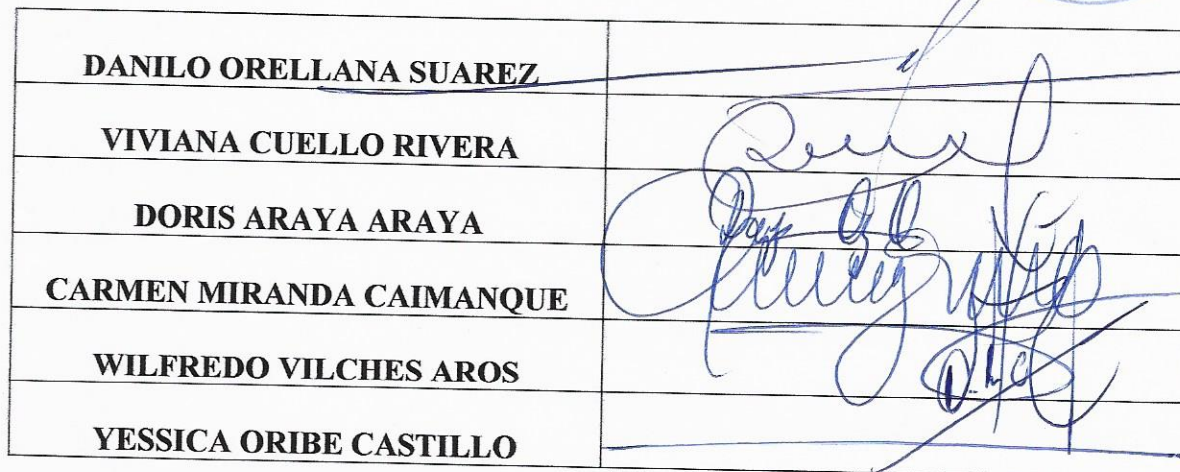 DANILO ORELLANA SUAREZ
VIVIANA CUELLO RIVERA
DORIS ARAYA ARAYA
CARMEN MIRANDA CAIMANQUE
WILFREDO VILCHES AROS
YESSICA ORIBE CASTILLO